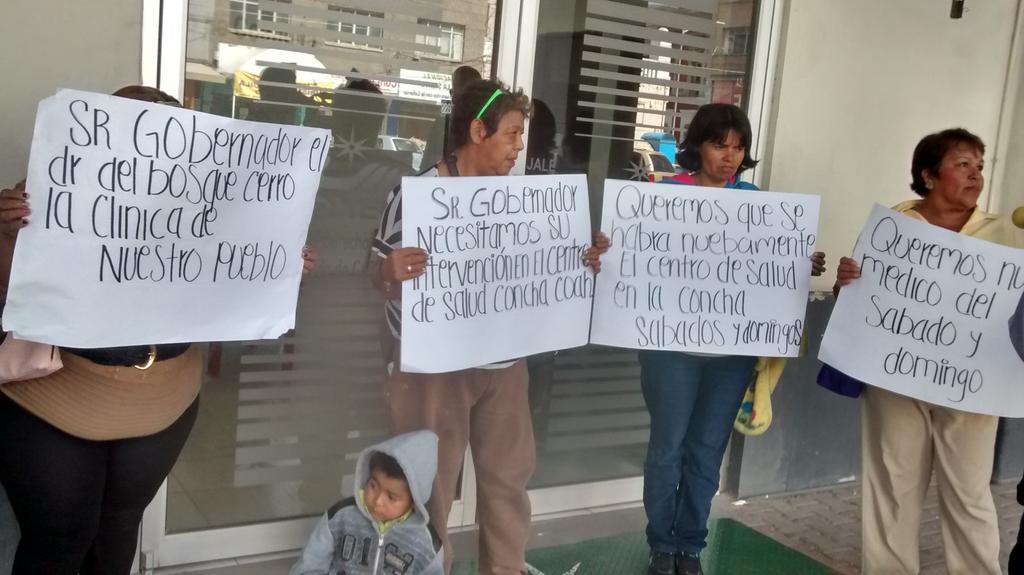 SR GObernador el
dr del bosque cerro
la clinica de
Nuestro Pueblo
SR. GObernador
Necesitamos su
intervención en el centro
de salud concha coah
Queremos que se
habra nuebamente
El centro de salud
en la concha
sabados y domingos
Queremos nu
medico del
sabado y
domingo
JALE